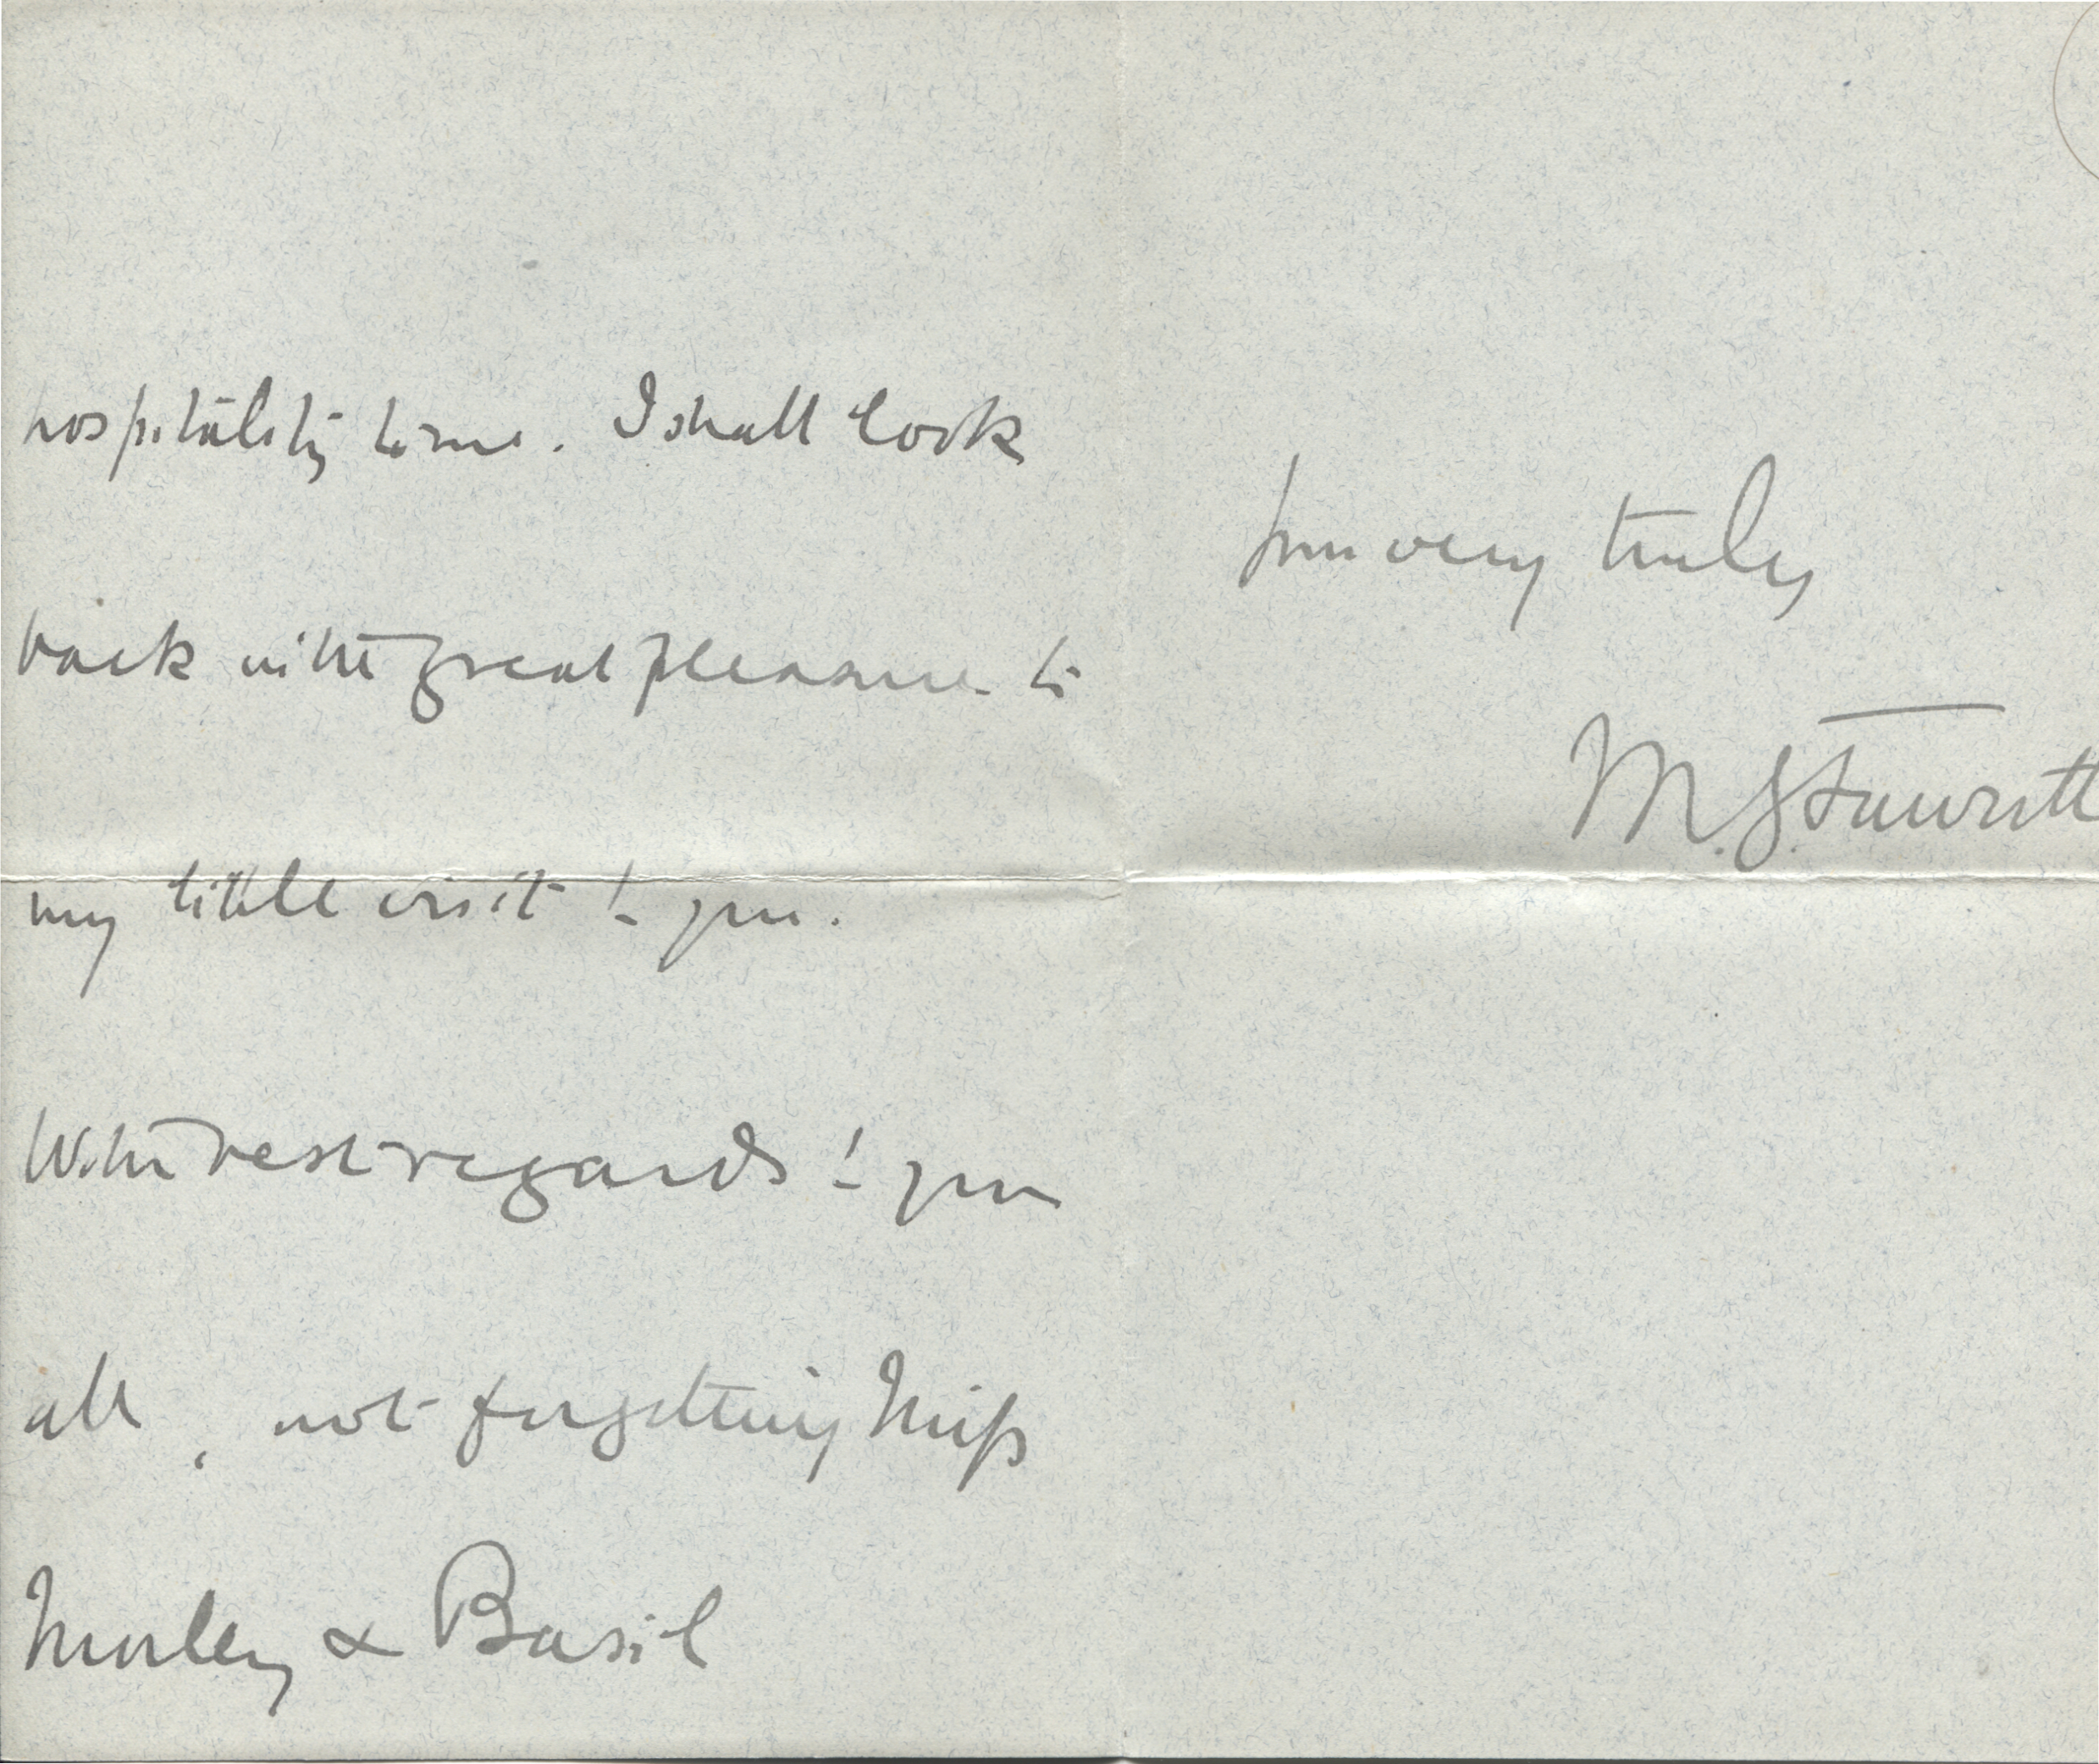 hospitality to me. I shall look
back with great pleasure to
my little visit to you.
With best regards to you
all, not forgetting Miss
Morley & Basil
Your very truly
M.G. Fawcett